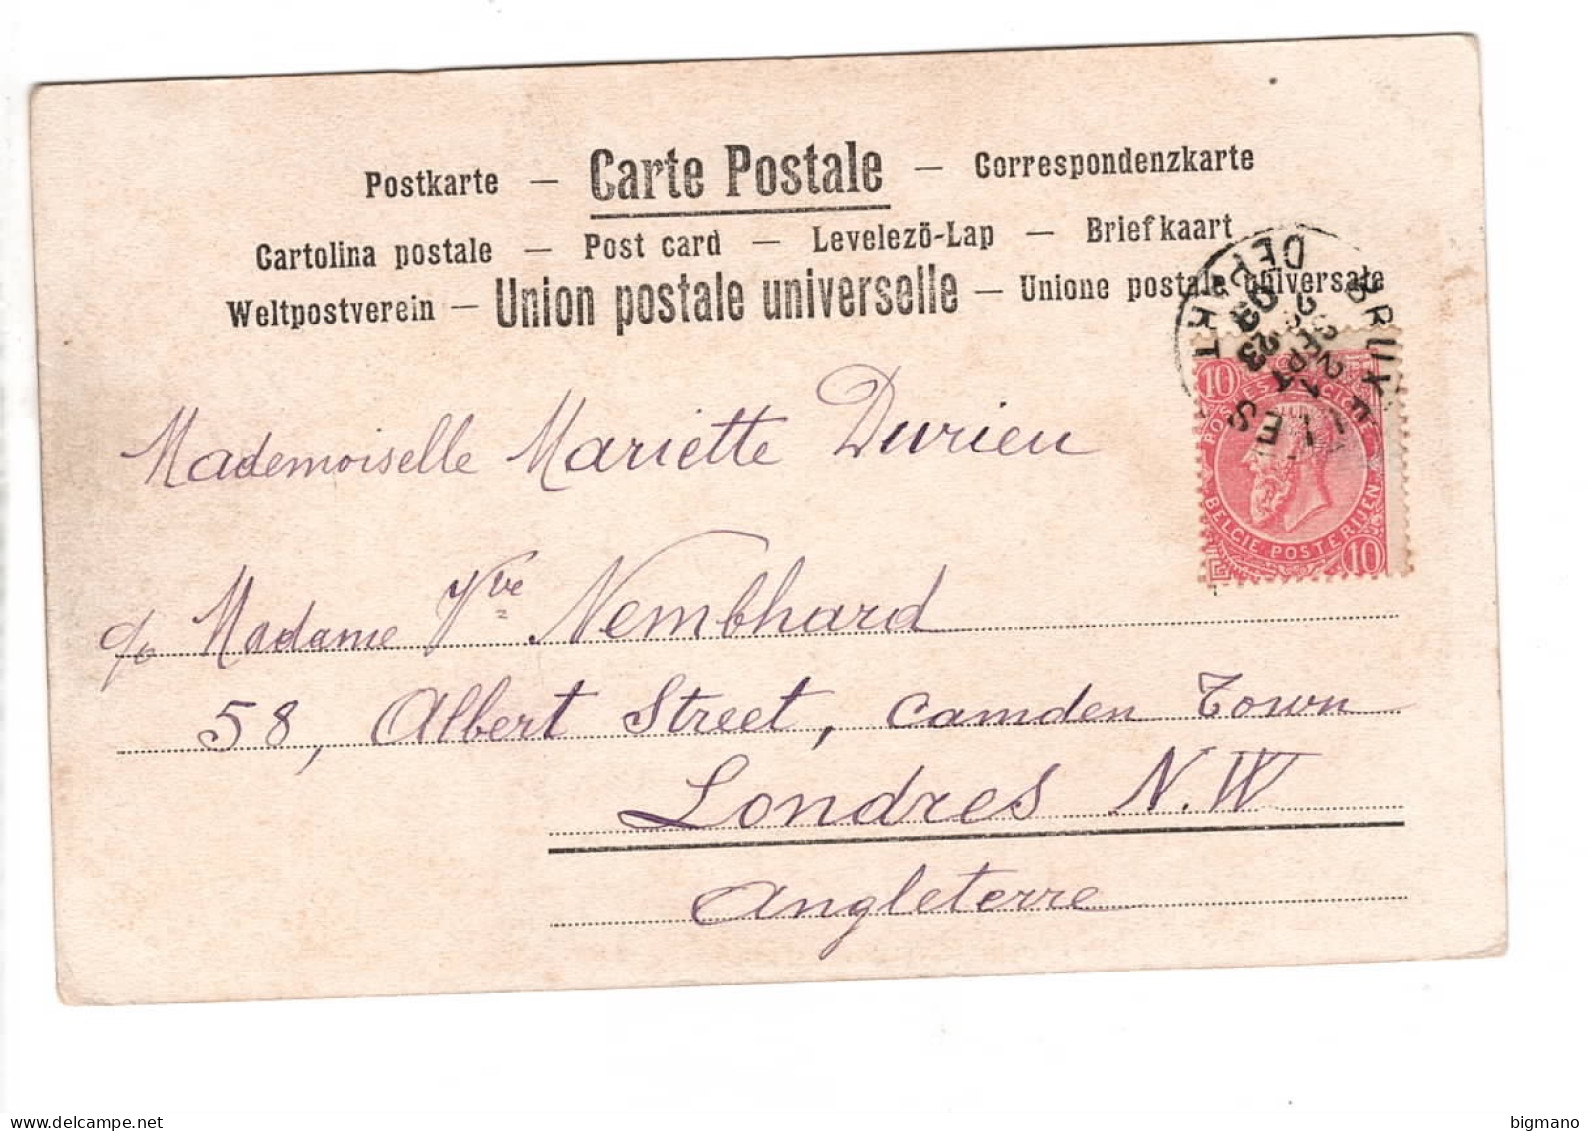 Postkarte — Carte Postale — Correspondenzkarte
Cartolina postale — Post card — Levelezö-Lap — Briefkaart
Weltpostverein — Union postale universelle — Unione postale universale
BRUXELLES
DEPART
10
BELGIE POSTERIJEN
10
Mademoiselle Mariette Durieu
c/o Madame Vve Nembhard
58, Albert Street, Camden Town
Londres N.W
Angleterre
bigmano